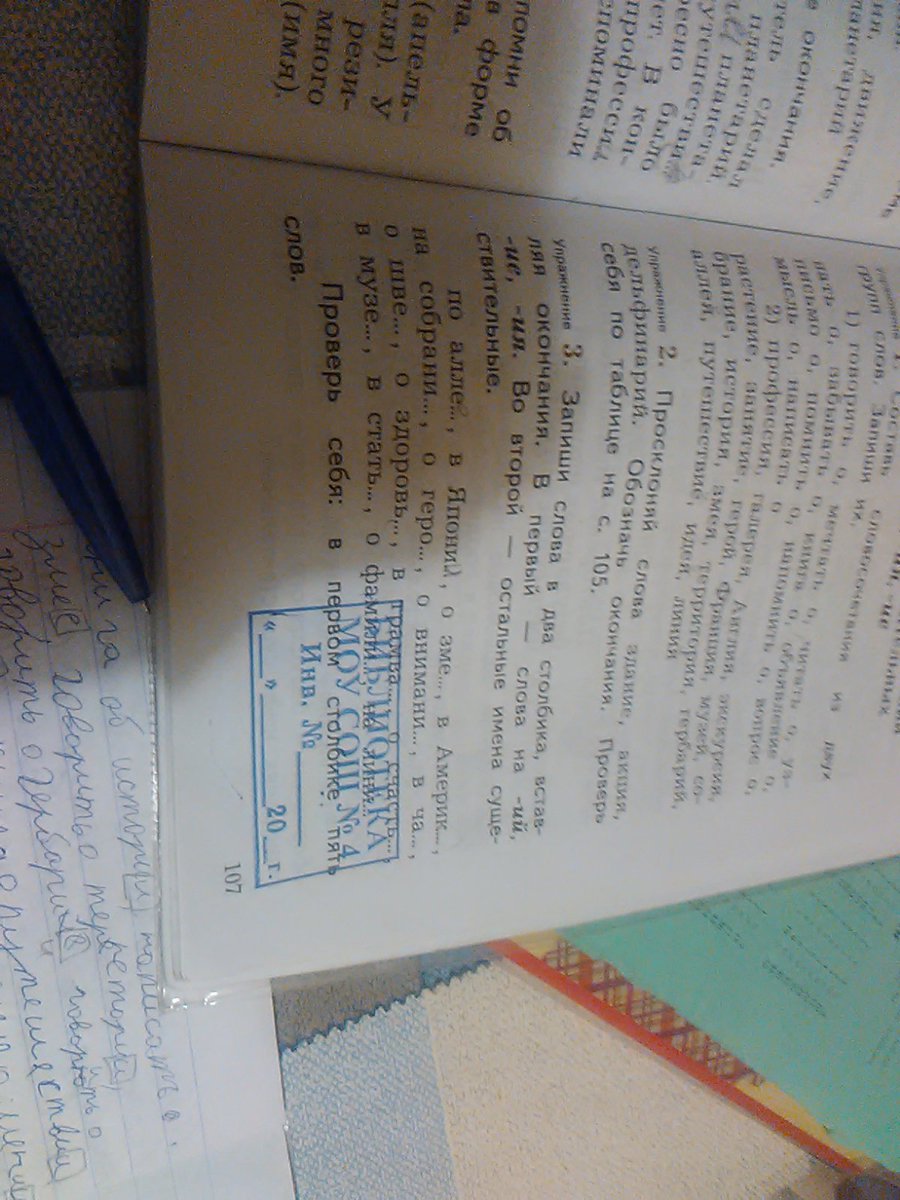 ние, движение,
планетарий
е окончания.
тель сделал
планетарии.
планета-
утешестви
ресно было
ет. В кон-
профессии
споминали
помни об
в форме
ла.
(апель-
ля). У
рези-
много
(имя).
Составь словосочетания из двух
групп слов. Запиши их.
1) говорить о, мечтать о, читать о, уз-
нать о, забывать о, книга о, объявление о,
письмо о, помнить о, напомнить о, вопрос о,
мысль о, написать о
2) профессия, галерея, Англия, экскурсия,
растение, занятие, герой, Франция, музей, со-
брание, история, змея, территория, гербарий,
аллея, путешествие, идея, линия
упражнение 2. Просклоняй слова здание, акция,
дельфинарий. Обозначь окончания. Проверь
себя по таблице на с. 105.
упражнение 3. Запиши слова в два столбика, встав-
ляя окончания. В первый — слова на -ий,
-ие, -ия. Во второй — остальные имена суще-
ствительные.
по алле..., в Японии, о зме..., в Америк...,
на собрани..., о геро..., о внимани..., в ча...,
о шве..., о здоровь..., в трамва..., о счасть...,
в музе..., в стать..., о фамили..., на лини...
Проверь себя: в первом столбике пять
слов.
БИБЛИОТЕКА
МОУ СОШ № 4
Инв. №
“ ” 20 г.
107
книга об истории, написать о
змее, говорить о территории,
говорить о гербарии, говорить о
путешествии